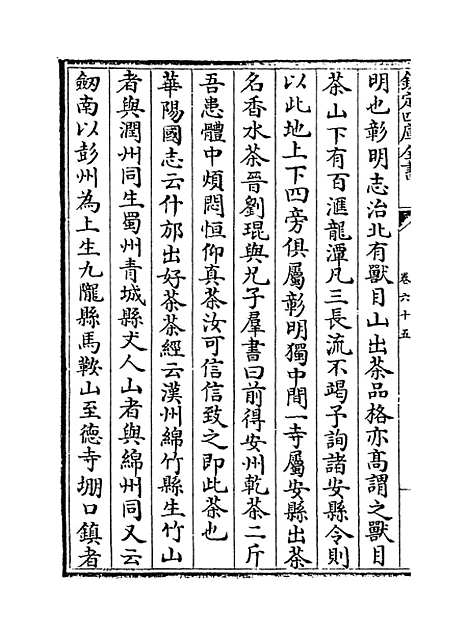 欽定四庫全書
卷六十五
明也彰明志治北有獸目山出茶品格亦高謂之獸目
茶山下有百滙龍潭凡三長流不竭予詢諸安縣令則
以此地上下四旁俱屬彰明獨中間一寺屬安縣出茶
名香水茶晉劉琨與兄子羣書曰前得安州乾茶二斤
吾患體中煩悶恒仰真茶汝可信信致之即此茶也
華陽國志云什邡出好茶茶經云漢州綿竹縣生竹山
者與潤州同生蜀州青城縣丈人山者與綿州同又云
劒南以彭州為上生九隴縣馬鞍山至德寺堋口鎮者